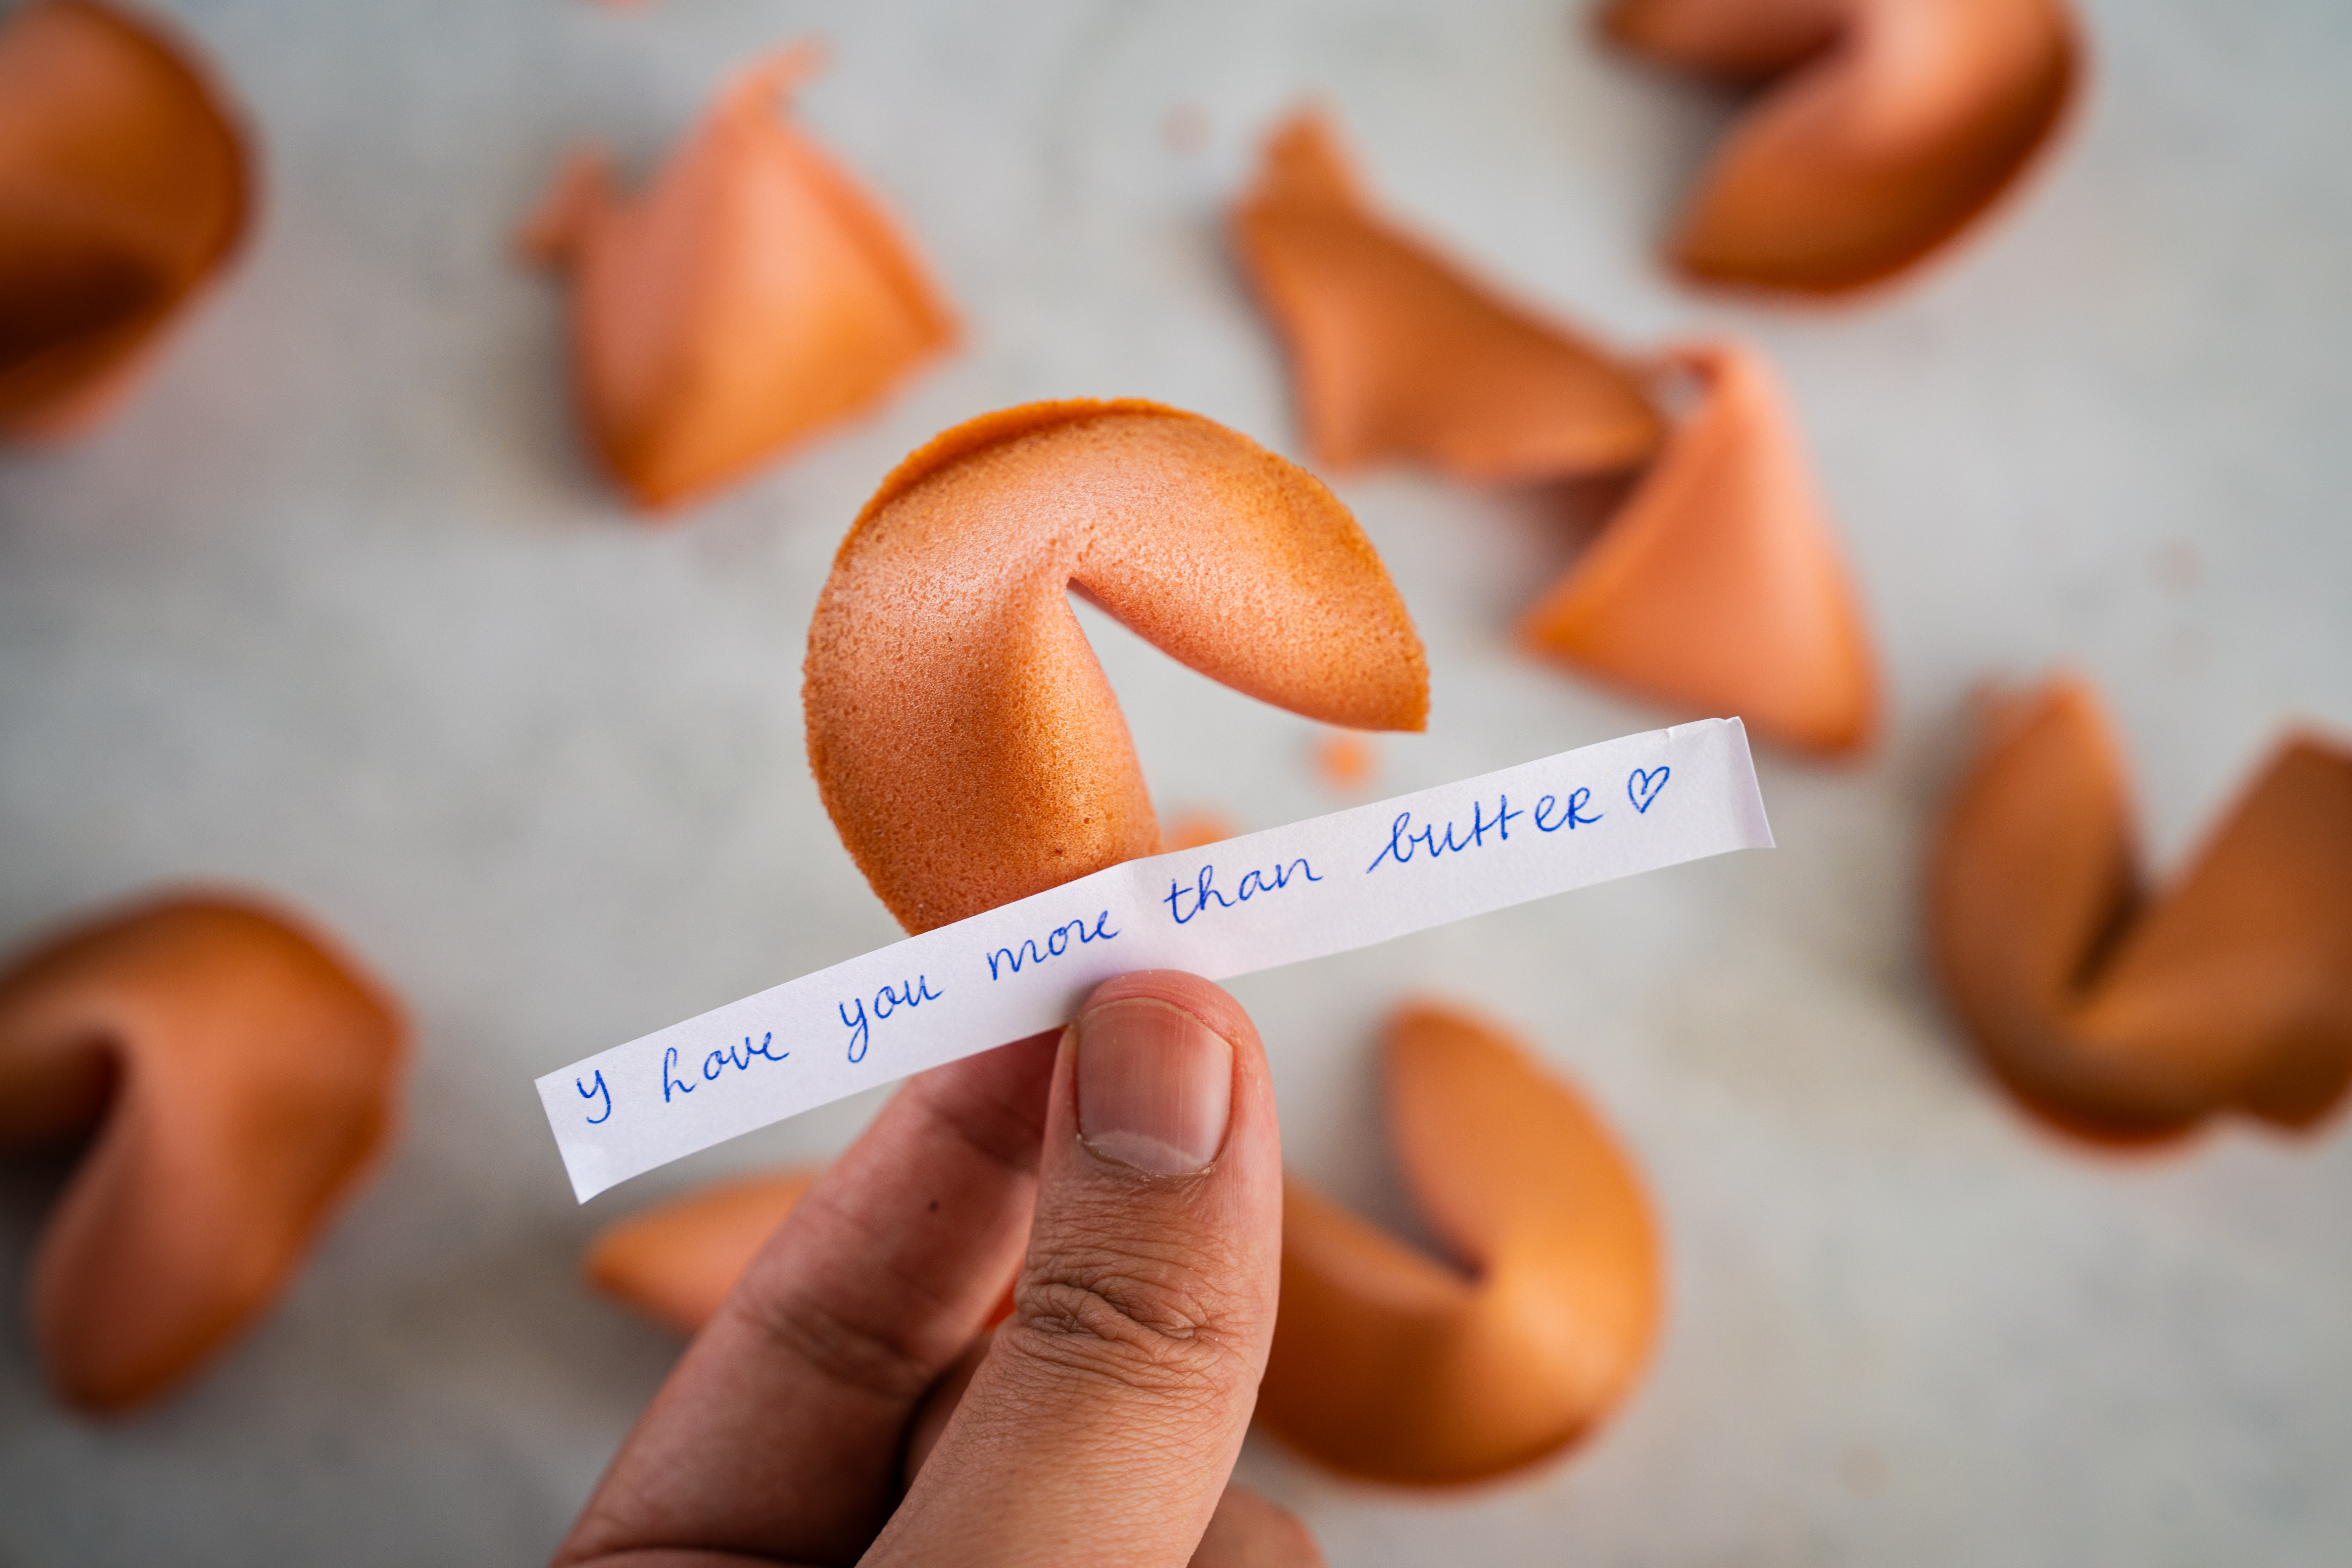 y hove you more than butter ♡